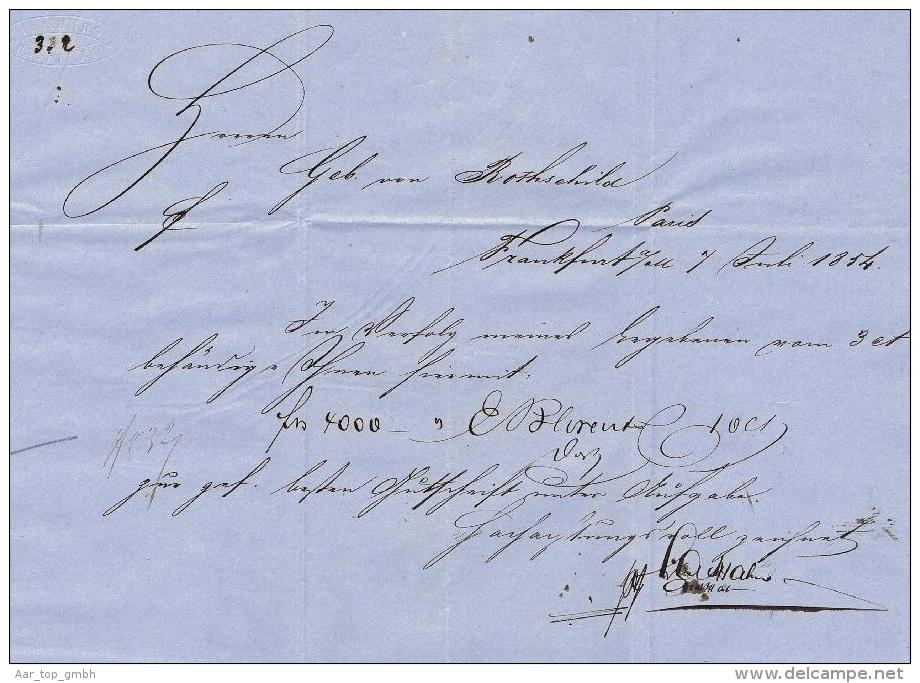 322
Herren
Geb. von Rothschild
Paris
Frankfurt a/M 7 Juli 1854.
Im Verfolg meines Ergebenen vom 3 ct
behändige Ihnen hiermit:
frs 4000 — " E Behrend 10 Oct
zur gef. besten Gutschrift unter Aufgabe.
Hochachtungsvoll zeichnet
Aar_top_gmbh
www.delcampe.net